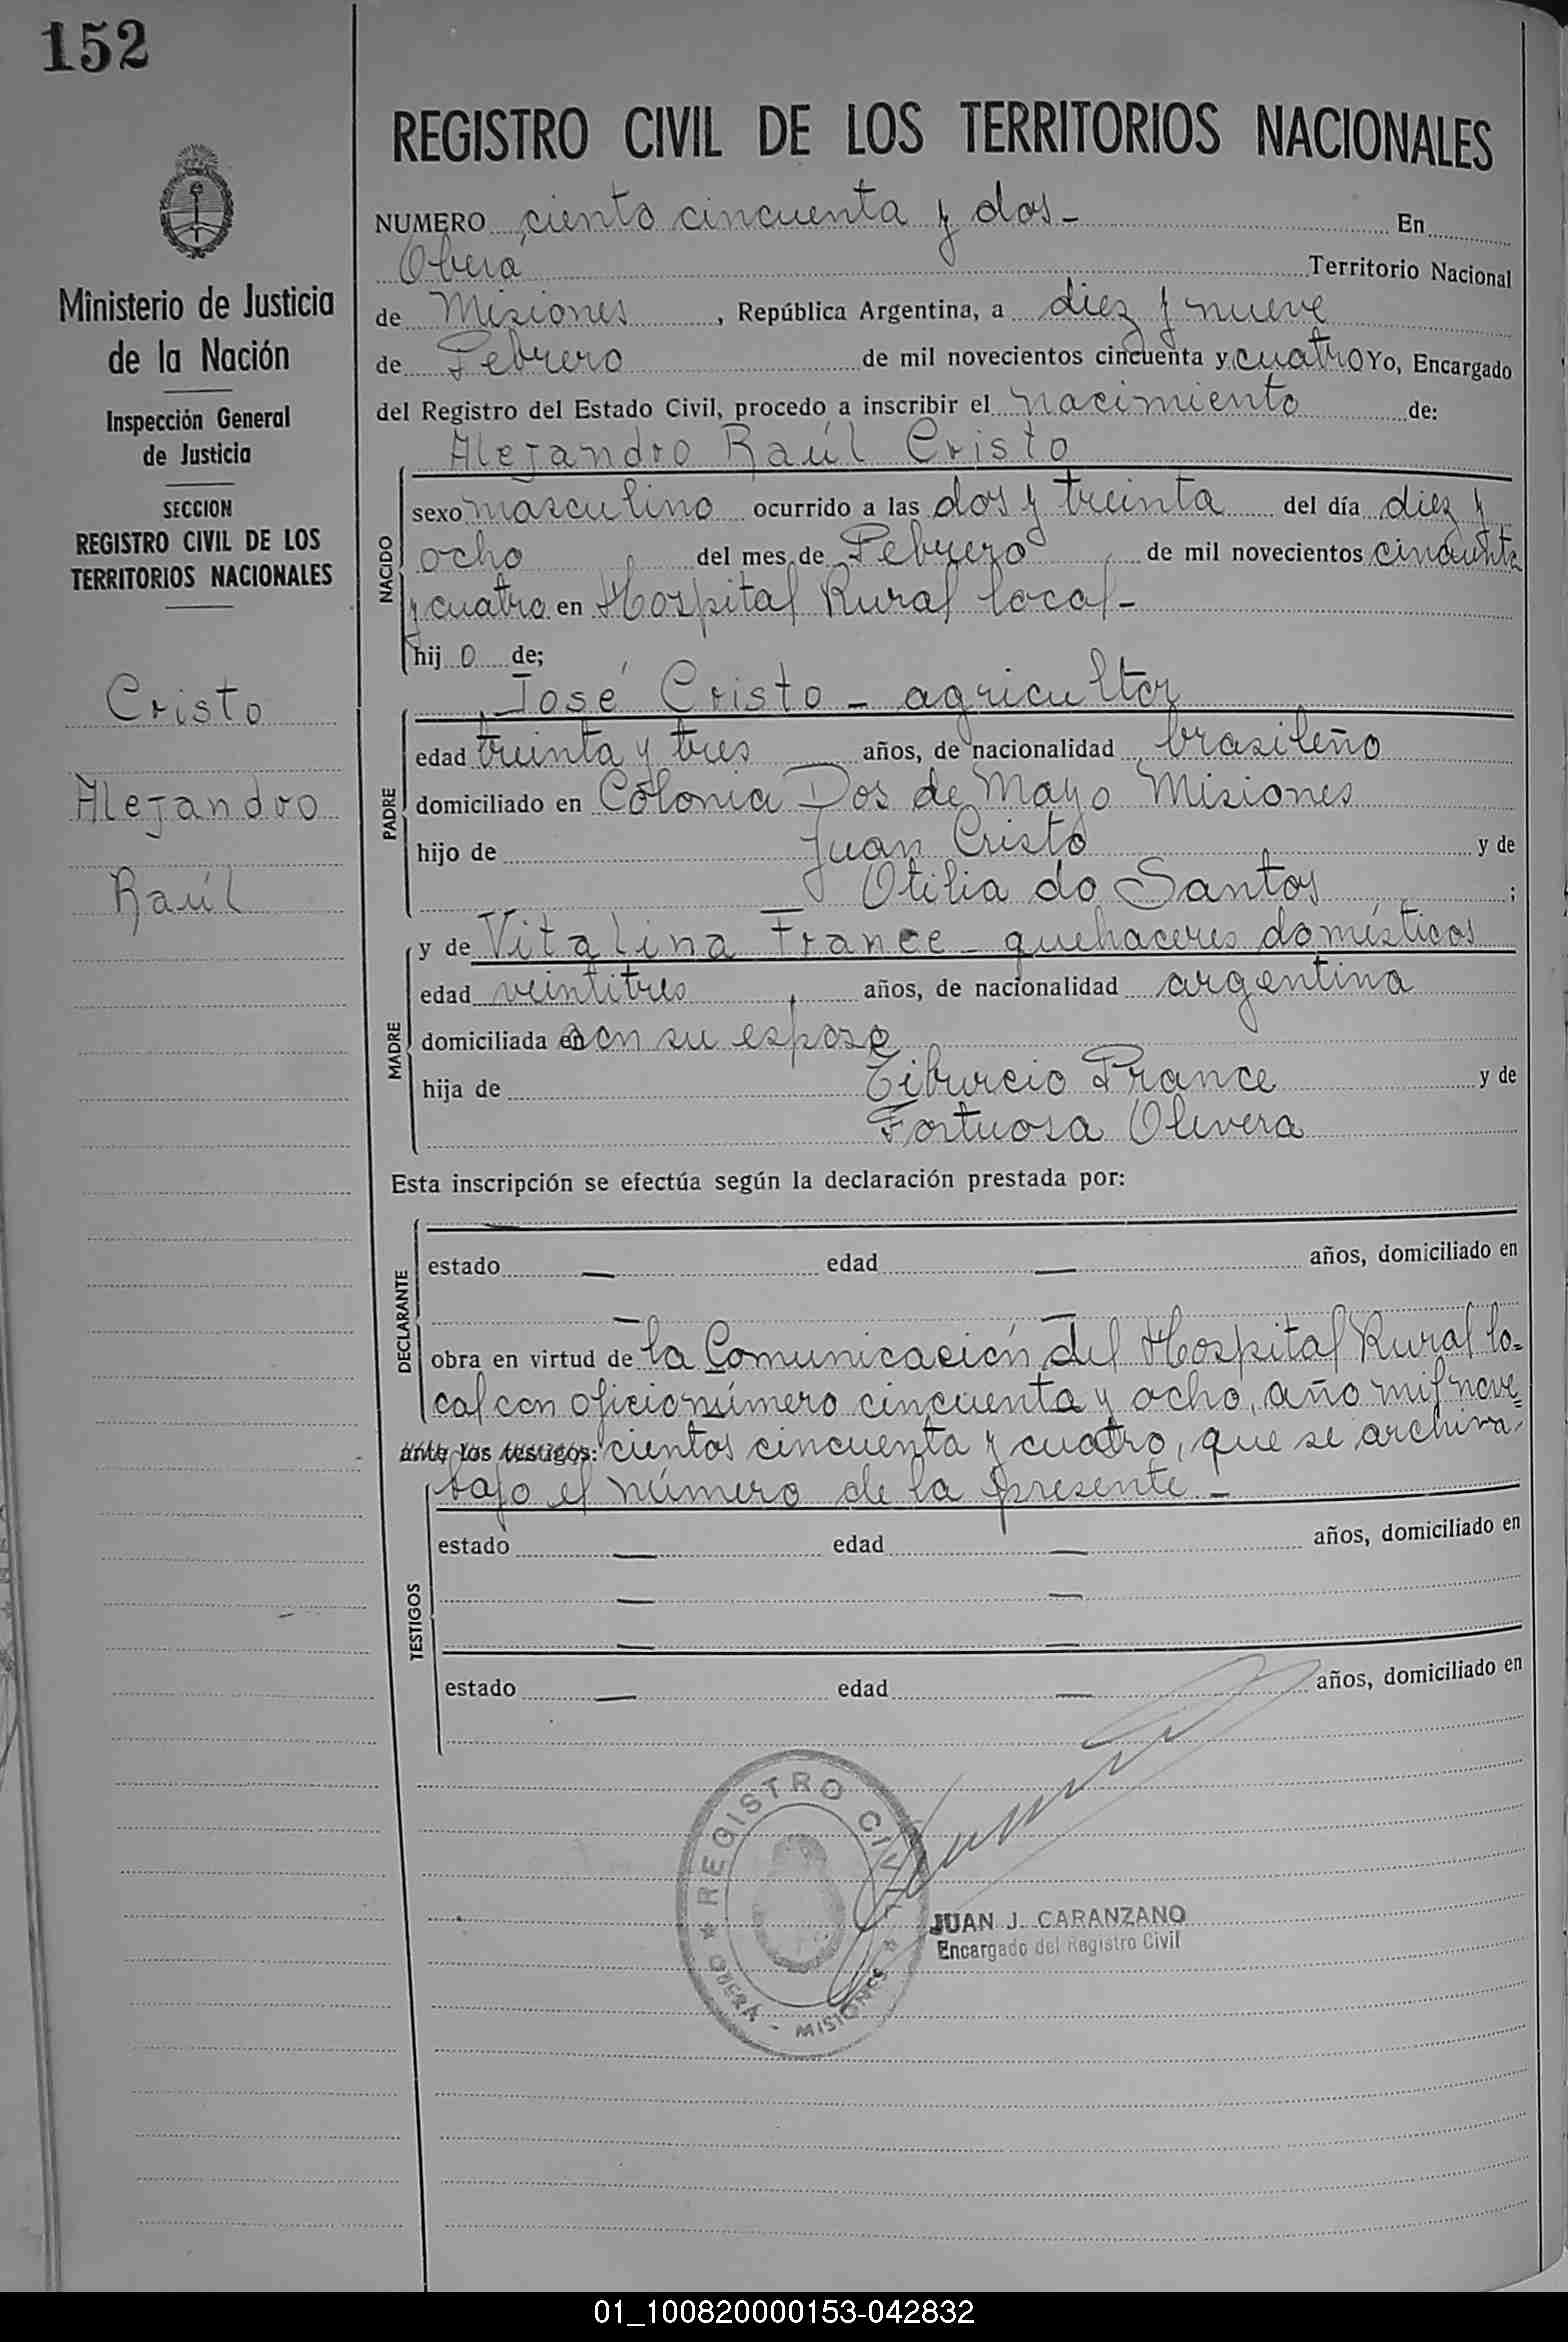 152
REGISTRO CIVIL DE LOS TERRITORIOS NACIONALES
Ministerio de Justicia
de la Nación
Inspección General
de Justicia
SECCION
REGISTRO CIVIL DE LOS
TERRITORIOS NACIONALES
Cristo
Alejandro
Raúl
NUMERO ciento cincuenta y dos - En
Oberá Territorio Nacional
de Misiones, República Argentina, a diez y nueve
de Febrero de mil novecientos cincuenta y cuatro Yo, Encargado
del Registro del Estado Civil, procedo a inscribir el nacimiento de:
Alejandro Raúl Cristo
NACIDO
sexo masculino ocurrido a las dos y treinta del día diez y
ocho del mes de Febrero de mil novecientos cincuenta
y cuatro en Hospital Rural local -
hij o de;
José Cristo - agricultor
PADRE
edad treinta y tres años, de nacionalidad brasileño
domiciliado en Colonia Dos de Mayo Misiones
hijo de Juan Cristo y de
Otilia do Santos ;
MADRE
y de Vitalina France - quehaceres domésticos
edad veintitres años, de nacionalidad argentina
domiciliada con su esposo
hija de Tiburcio France y de
Fortuosa Olivera
Esta inscripción se efectúa según la declaración prestada por:
DECLARANTE
estado — edad — años, domiciliado en
—
obra en virtud de la Comunicación del Hospital Rural lo-
cal con oficio número cincuenta y ocho, año mil nove=
ante los testigos: cientos cincuenta y cuatro, que se archiva
bajo el número de la presente -
TESTIGOS
estado — edad — años, domiciliado en
— —
— —
estado — edad — años, domiciliado en
REGISTRO CIVIL
OBERA - MISIONES
JUAN J. CARANZANO
Encargado del Registro Civil
01_100820000153-042832